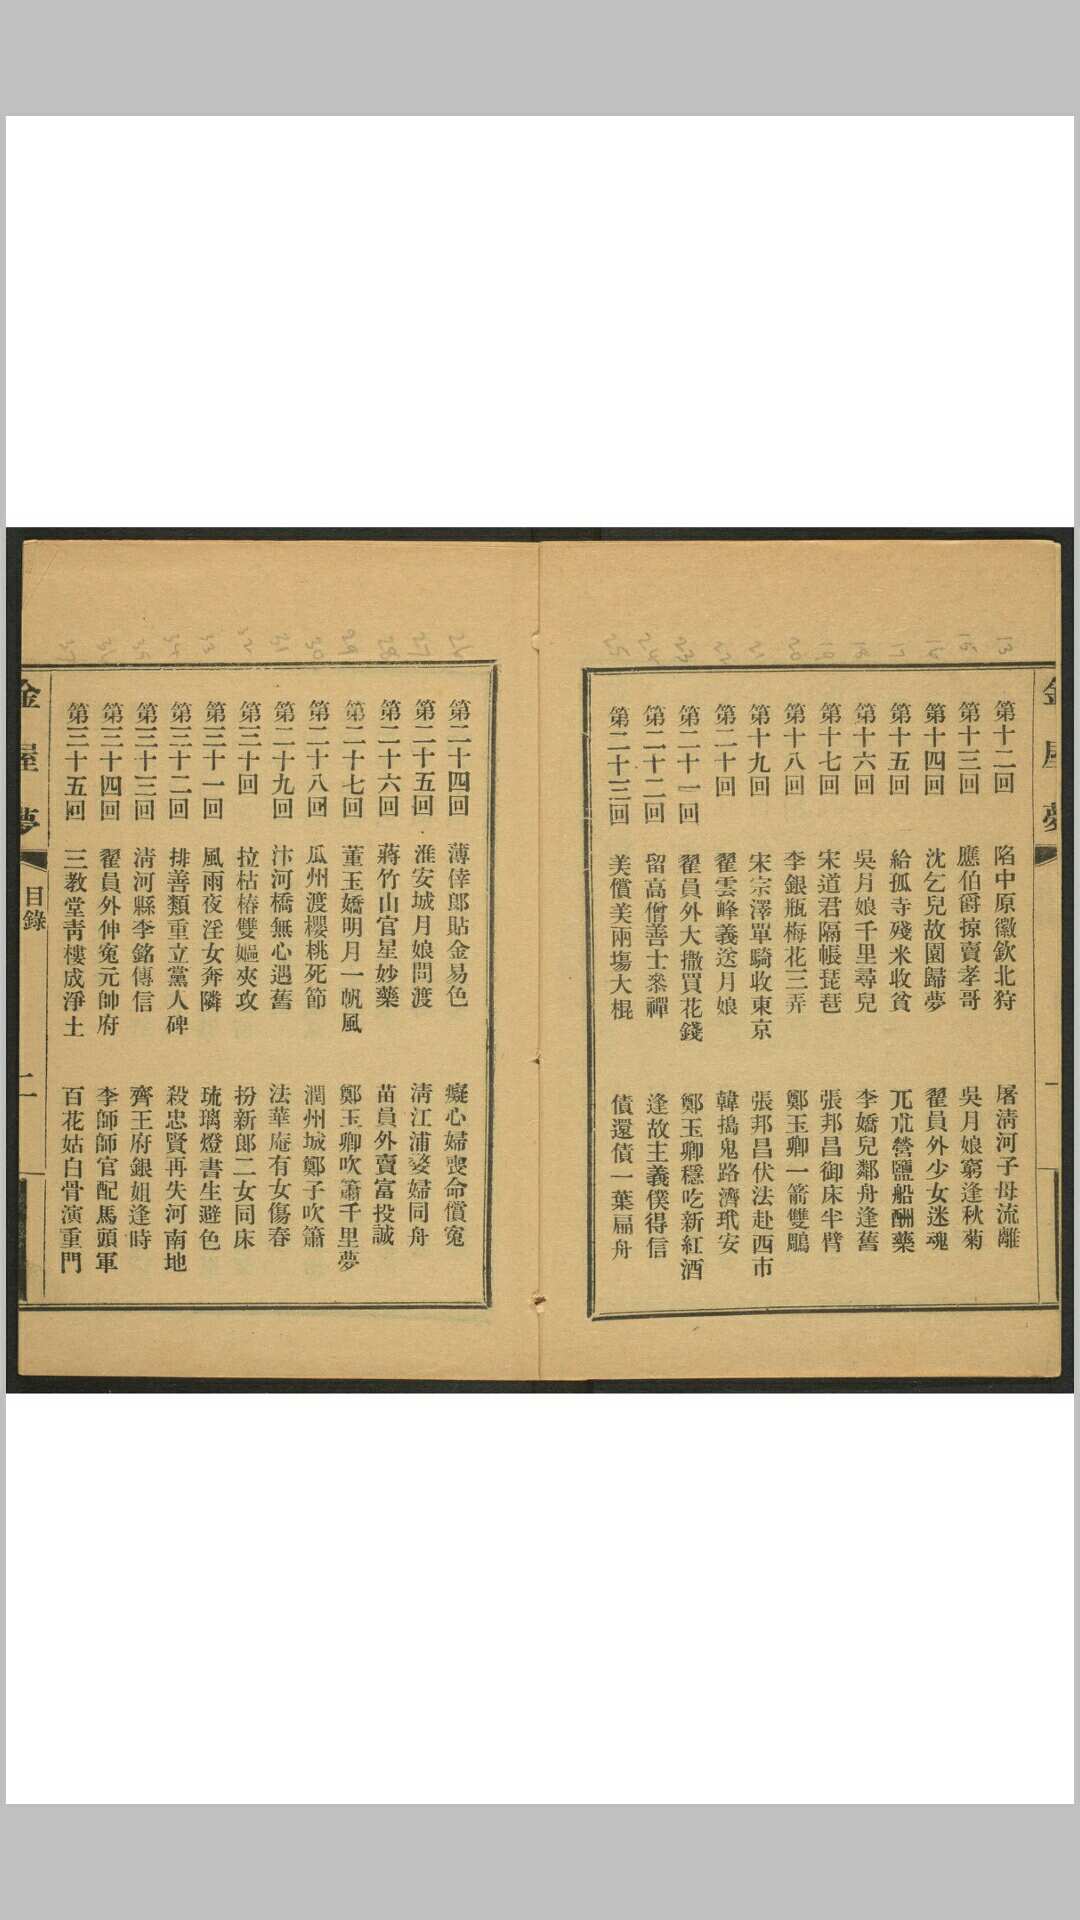 金屋夢
一
第十二回 陷中原徽欽北狩 屠淸河子母流離
第十三回 應伯爵掠賣孝哥 吳月娘窮逢秋菊
第十四回 沈乞兒故園歸夢 翟員外少女迷魂
第十五回 給孤寺殘米收貧 兀朮營鹽船酬藥
第十六回 吳月娘千里尋兒 李嬌兒鄰舟逢舊
第十七回 宋道君隔帳琵琶 張邦昌御床半臂
第十八回 李銀瓶梅花三弄 鄭玉卿一箭雙鵰
第十九回 宋宗澤單騎收東京 張邦昌伏法赴西市
第二十回 翟雲峰義送月娘 韓搗鬼路濟玳安
第二十一回 翟員外大撒買花錢 鄭玉卿穩吃新紅酒
第二十二回 留高僧善士叅禪 逢故主義僕得信
第二十三回 美償美兩塲大棍 債還債一葉扁舟
第二十四回 薄倖郎貼金易色 癡心婦喪命償寃
第二十五回 淮安城月娘問渡 淸江浦婺婦同舟
第二十六回 蔣竹山官星妙藥 苗員外賣富投誠
第二十七回 董玉嬌明月一帆風 鄭玉卿吹簫千里夢
第二十八回 瓜州渡櫻桃死節 潤州城鄭子吹簫
第二十九回 汴河橋無心遇舊 法華庵有女傷春
第三十回 拉枯樁雙嫗夾攻 扮新郎二女同床
第三十一回 風雨夜淫女奔隣 琉璃燈書生避色
第三十二回 排善類重立黨人碑 殺忠賢再失河南地
第三十三回 淸河縣李銘傳信 齊王府銀姐逢時
第三十四回 翟員外伸寃元帥府 李師師官配馬頭軍
第三十五回 三教堂靑樓成淨土 百花姑白骨演重門
金屋夢 目錄
二